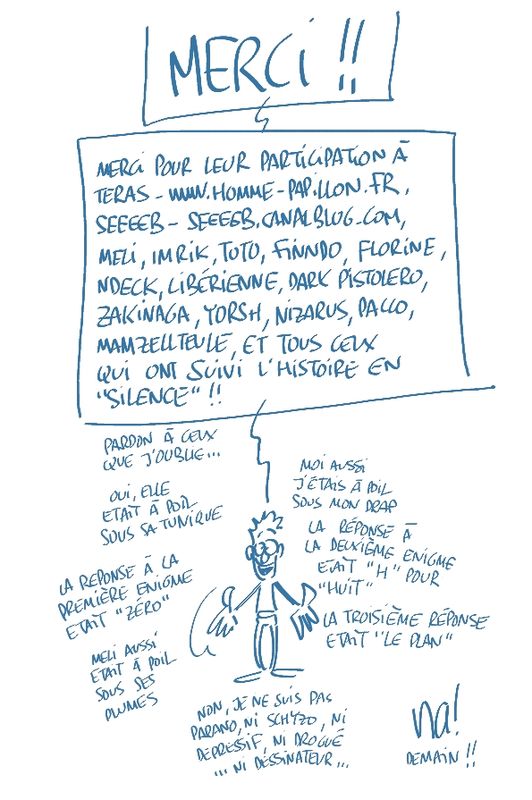 MERCI !!
MERCI POUR LEUR PARTICIPATION À
TERAS - WWW.HOMME-PAPILLON.FR,
SEEEEB - SEEEEB.CANALBLOG.COM,
MELI, IMRIK, TOTO, FINNDO, FLORINE,
NDECK, LIBÉRIENNE, DARK PISTOLERO,
ZAKINAGA, YORSH, NIZARUS, PACCO,
MAMZELLTEULE, ET TOUS CEUX
QUI ONT SUIVI L'HISTOIRE EN
"SILENCE" !!
PARDON À CEUX
QUE J'OUBLIE...
OUI, ELLE
ETAIT À POIL
SOUS SA TUNIQUE
LA REPONSE À LA
PREMIÈRE ENIGME
ETAIT "ZÉRO"
MELI AUSSI
ETAIT À POIL
SOUS SES
PLUMES
MOI AUSSI
J'ÉTAIS À POIL
SOUS MON DRAP
LA RÉPONSE À
LA DEUXIÈME ENIGME
ETAIT "H" POUR
"HUIT"
LA TROISIÈME RÉPONSE
ETAIT "LE PLAN"
NON, JE NE SUIS PAS
PARANO, NI SCHYZO, NI
DEPRESSIF, NI DROGUÉ
... NI DESSINATEUR...
na!
DEMAIN !!